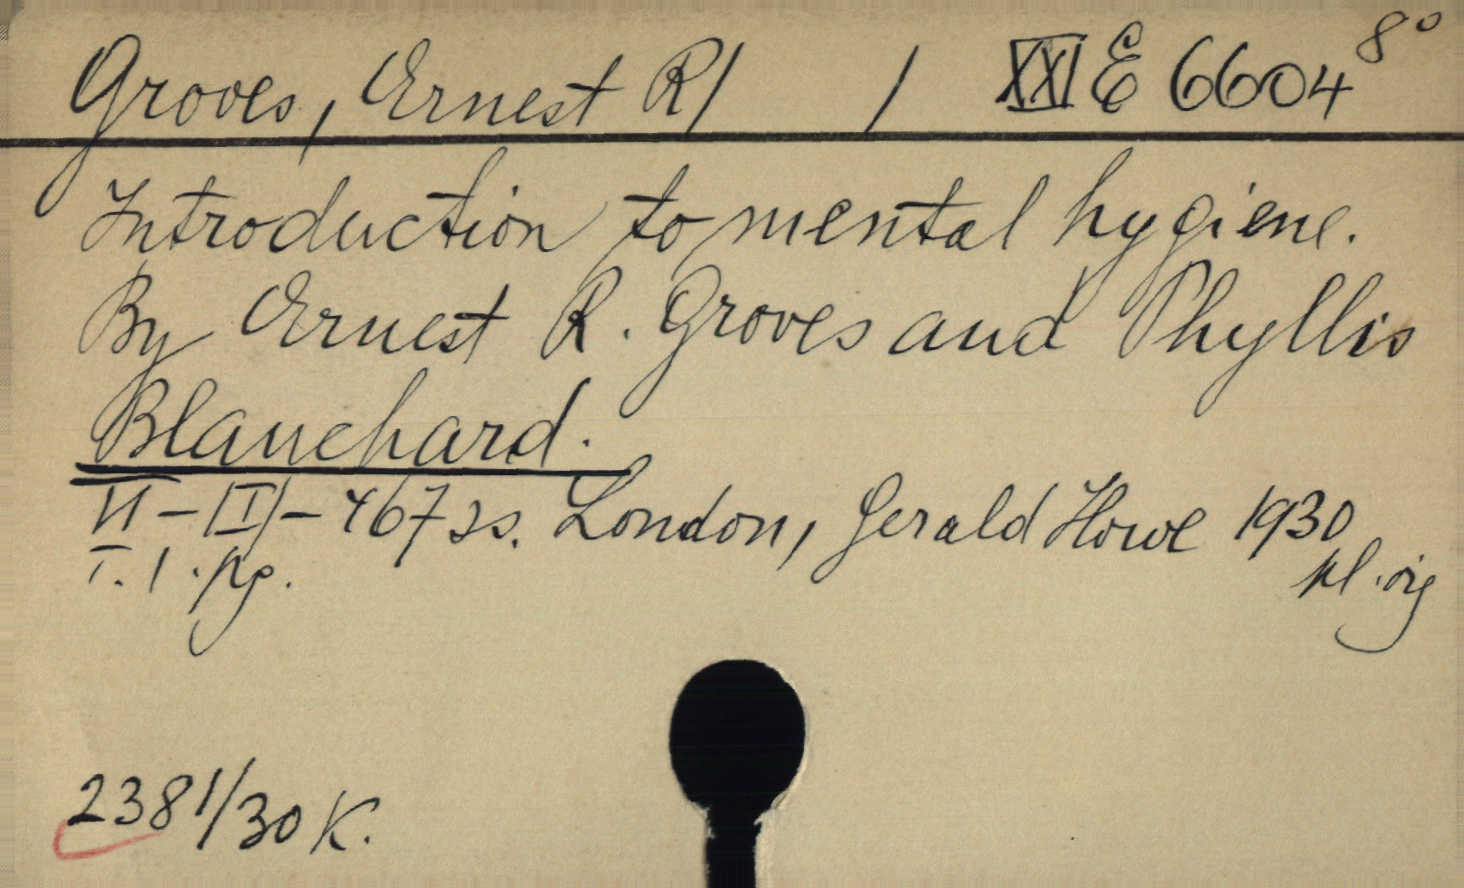 Groves, Ernest R/ / XXI E 6604 8°
Introduction to mental hygiene.
By Ernest R. Groves and Phyllis
Blanchard.
VI-[I]-467 ss. London, Gerald Howe 1930
T. 1. pg. pl. orig
2381/30 K.